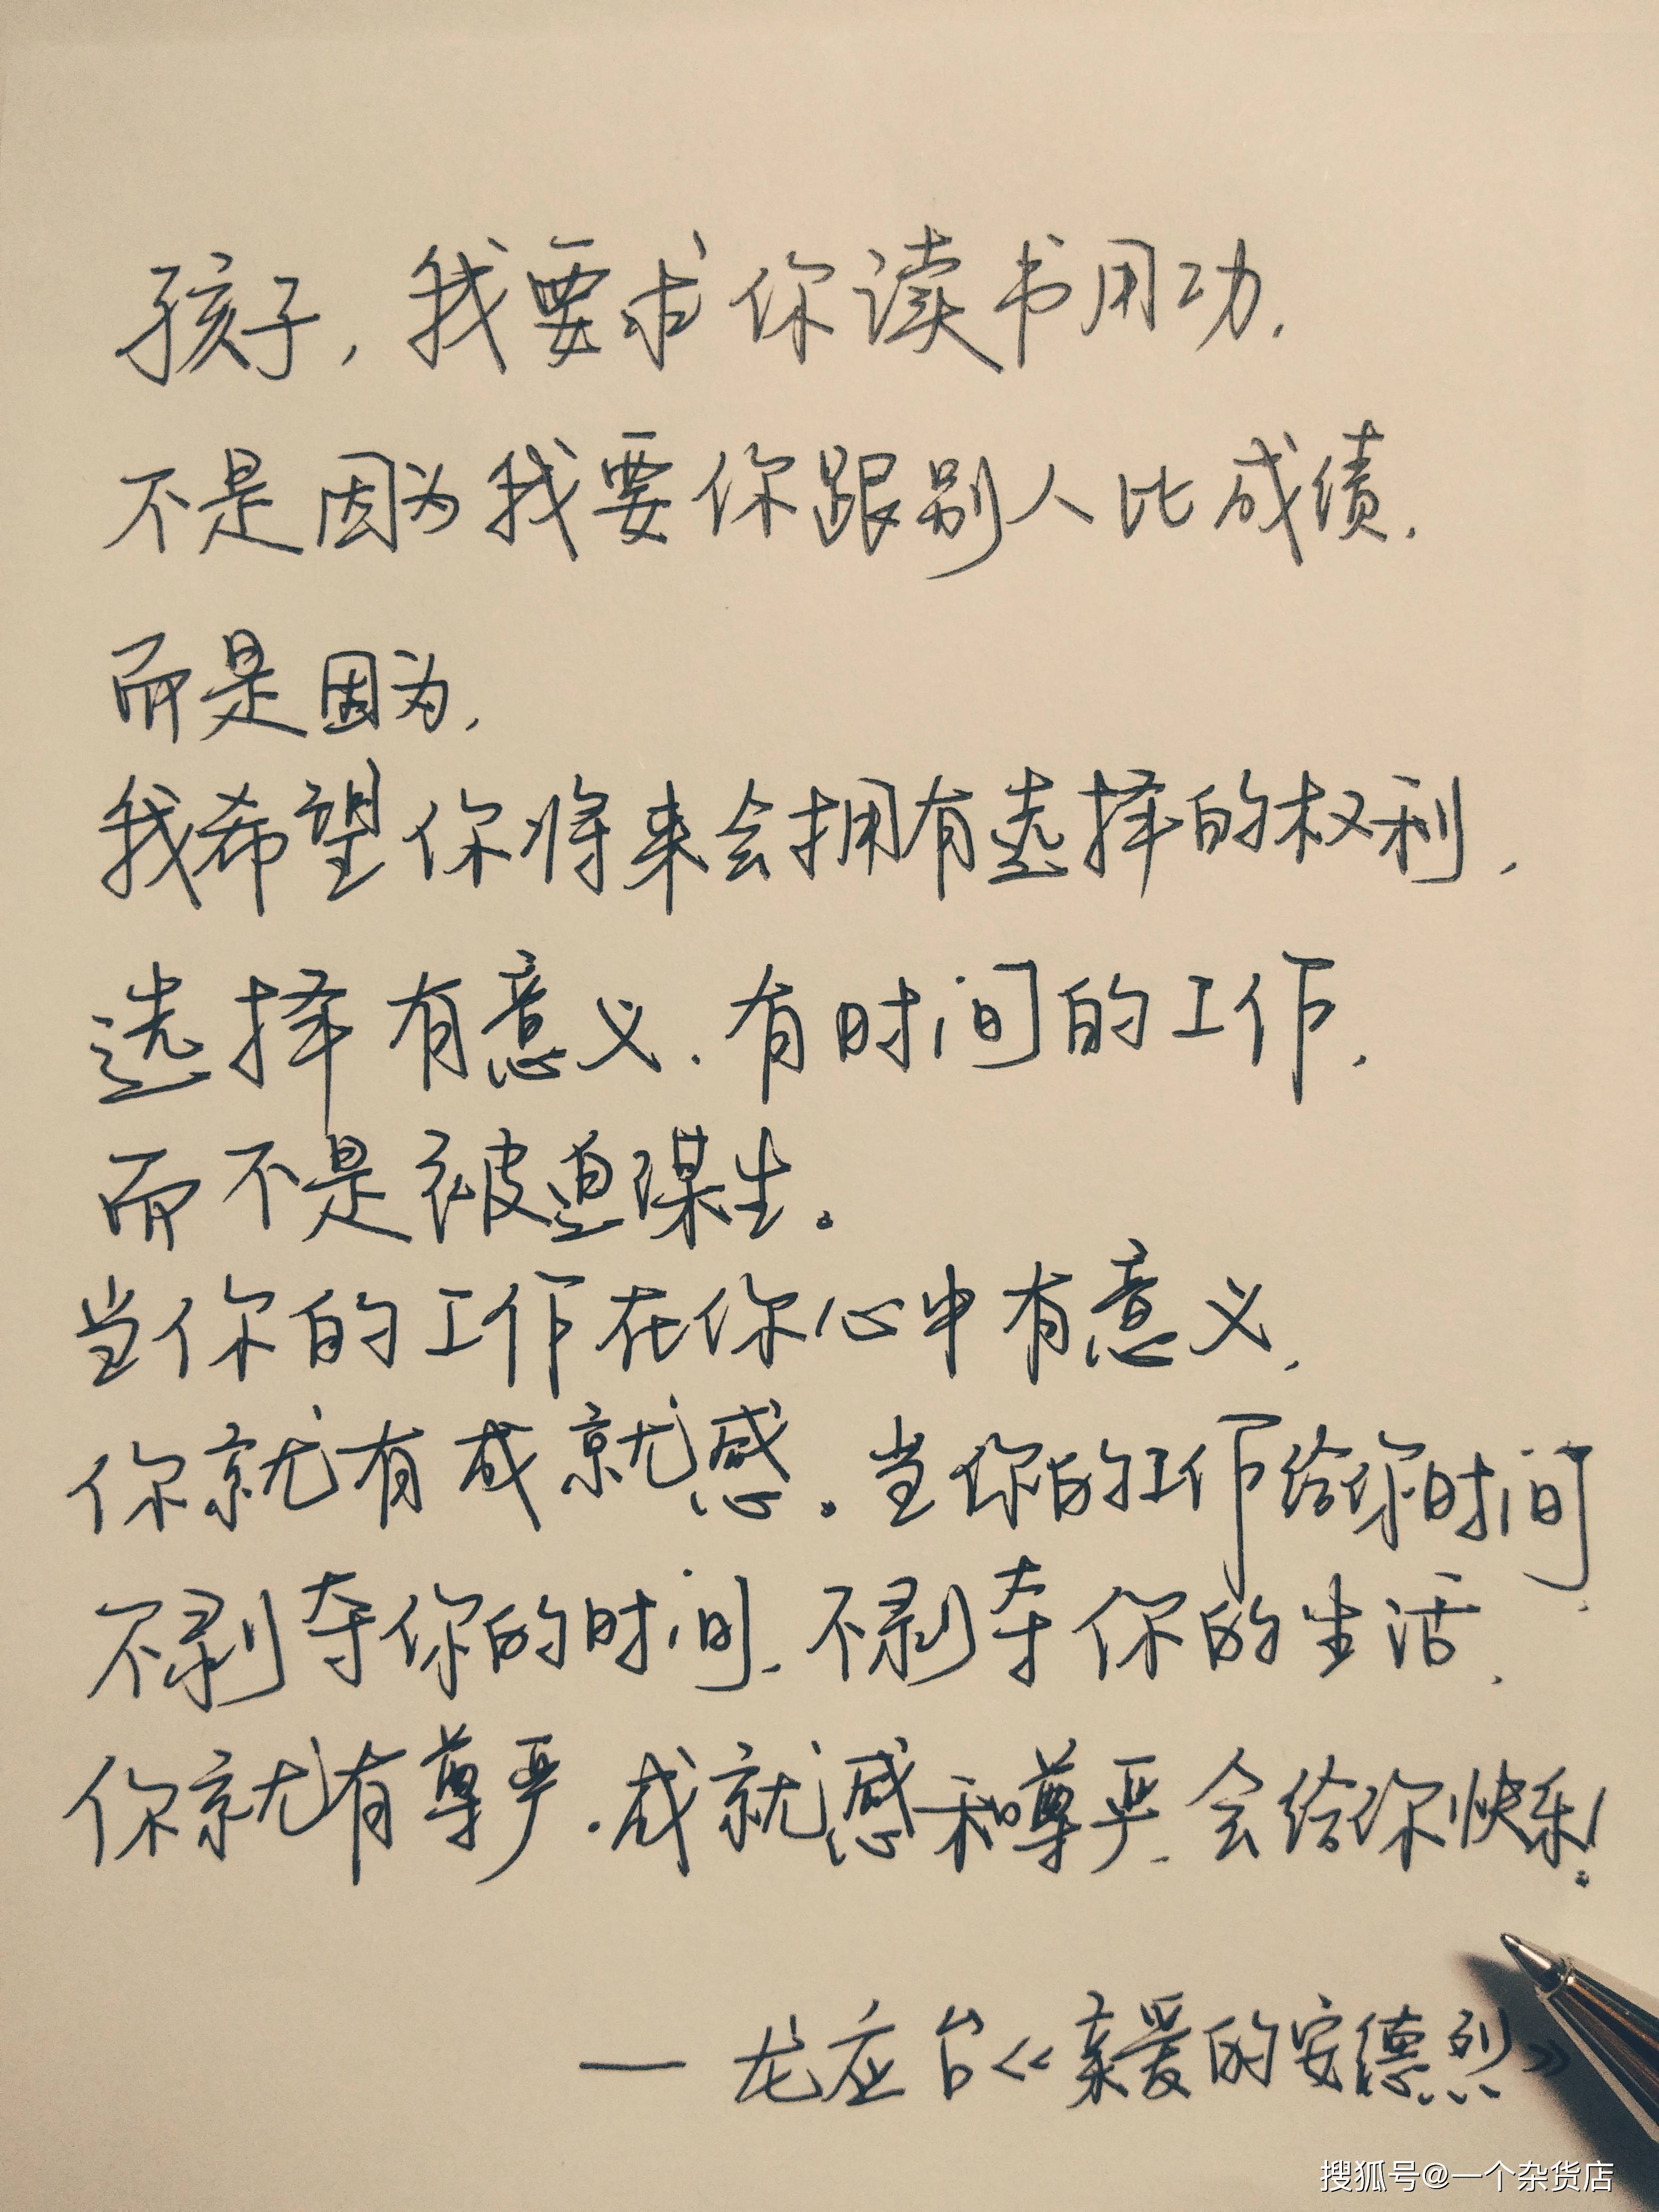 孩子，我要求你读书用功，
不是因为我要你跟别人比成绩，
而是因为，
我希望你将来会拥有选择的权利，
选择有意义、有时间的工作，
而不是被迫谋生。
当你的工作在你心中有意义，
你就有成就感。当你的工作给你时间，
不剥夺你的时间、不剥夺你的生活，
你就有尊严.成就感和尊严、会给你快乐!
— 龙应台《亲爱的安德烈》
搜狐号@一个杂货店